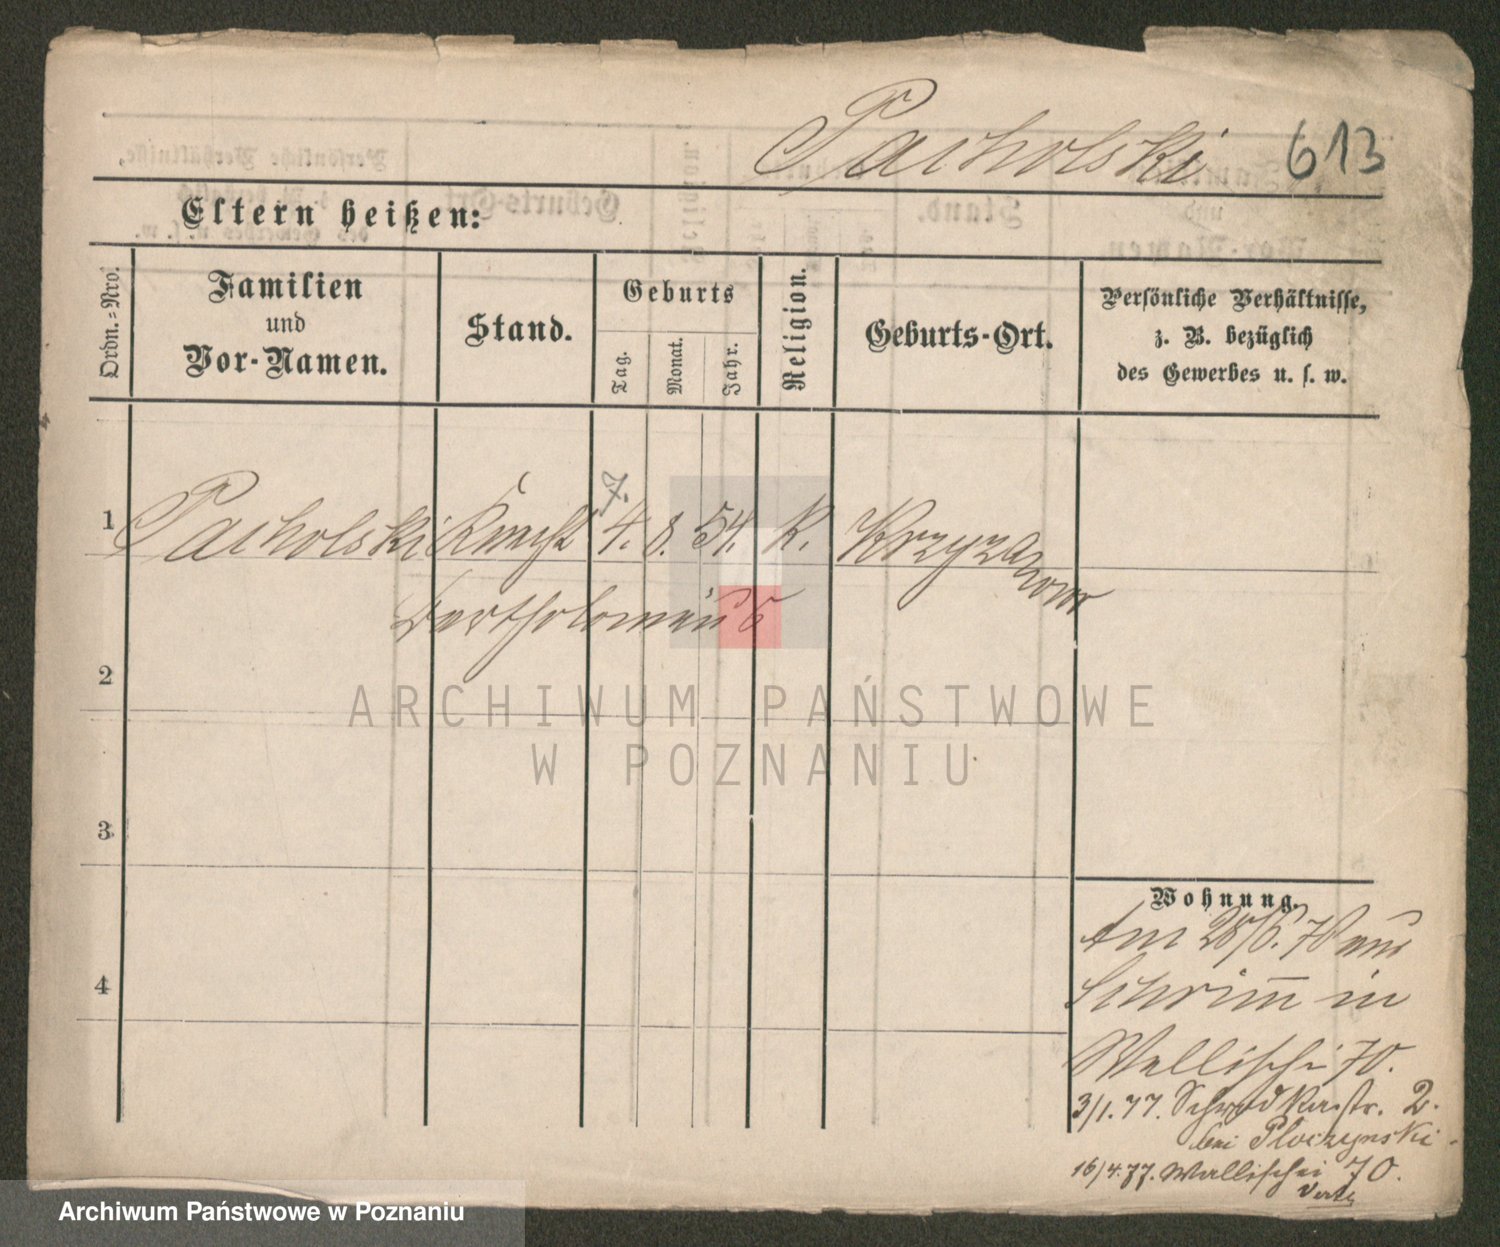 Pacholski 613
Eltern heißen:
Ordn.=Nro.
Familien
und
Vor-Namen.
Stand.
Geburts
Tag.
Monat.
Jahr.
Religion.
Geburts-Ort.
Persönliche Verhältnisse,
z. B. bezüglich
des Gewerbes u. s. w.
7.
1 Pacholski Knecht 4. 8. 54. K. Krzyzanowo
Bartholomäus
2
3
4
Wohnung.
Am 28/6. 76 aus
Schrimm in
Wallischei 70.
3/1. 77. Schrodkastr. 2.
bei Ploczynski.
16/4. 77. Wallischei 70.
ARCHIWUM PAŃSTWOWE
W POZNANIU
Archiwum Państwowe w Poznaniu